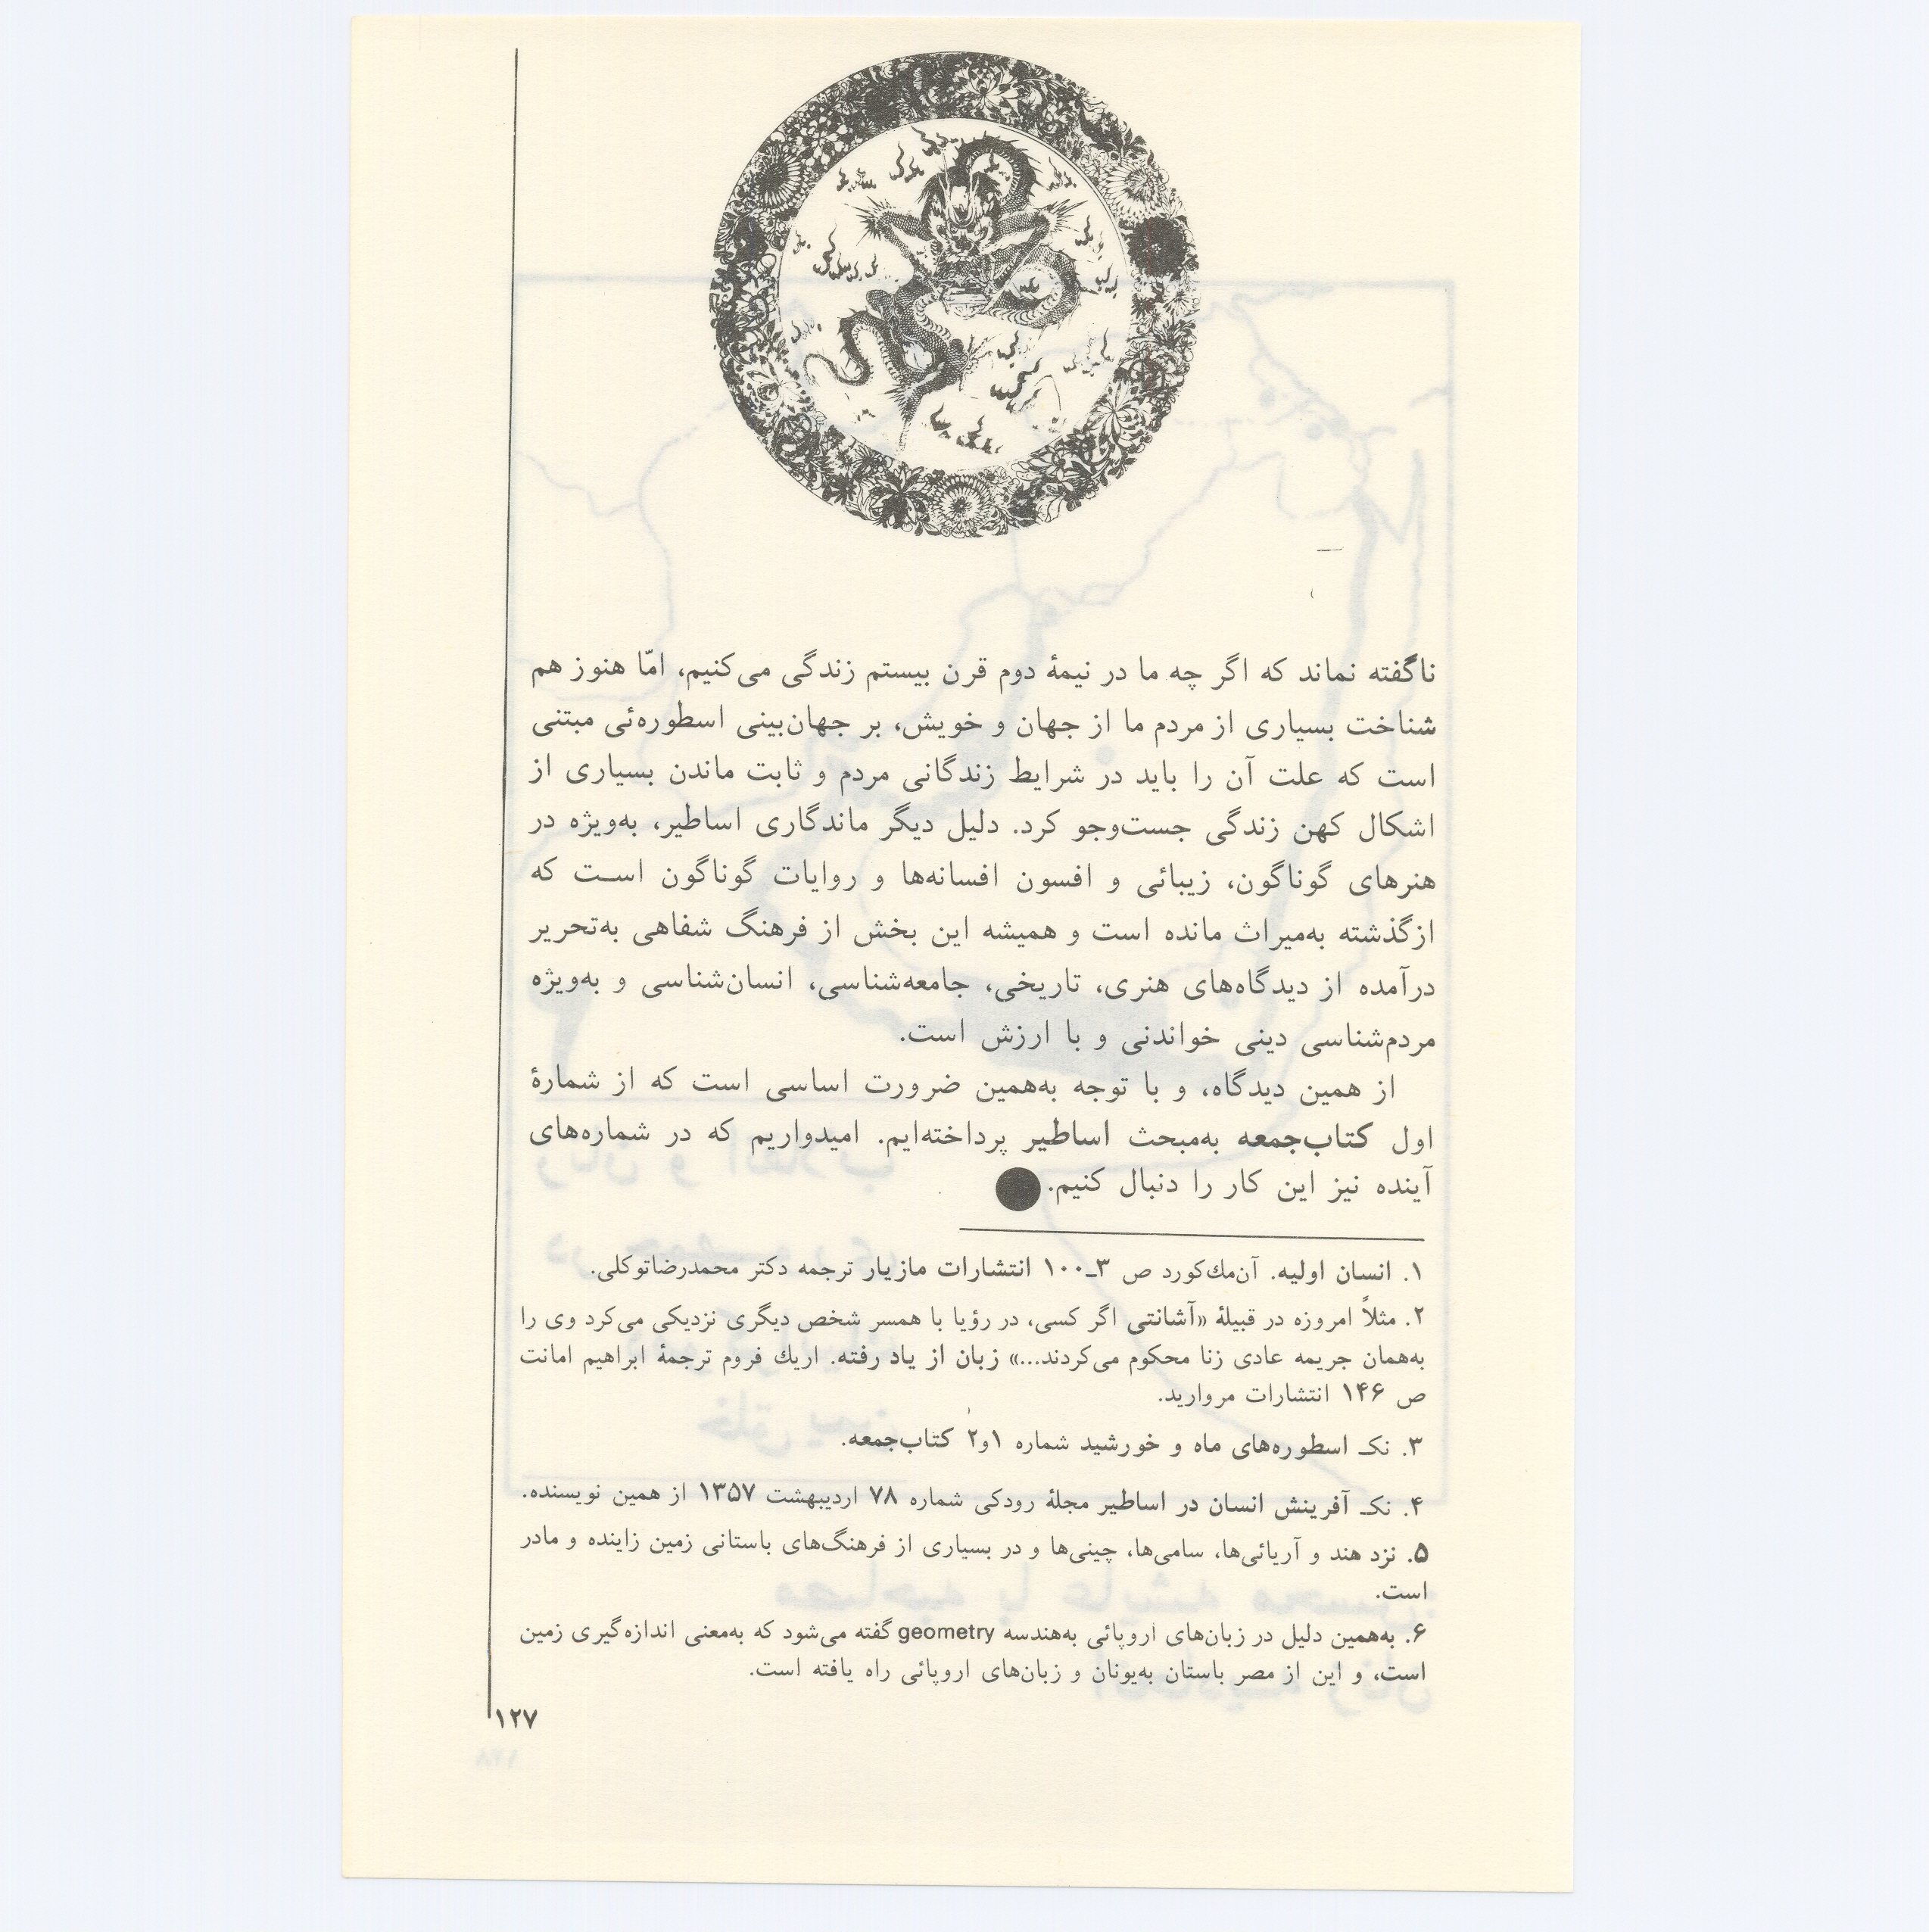 ناگفته نماند که اگر چه ما در نیمهٔ دوم قرن بیستم زندگی می‌کنیم، امّا هنوز هم
شناخت بسیاری از مردم ما از جهان و خویش، بر جهان‌بینی اسطوره‌ئی مبتنی
است که علت آن را باید در شرایط زندگانی مردم و ثابت ماندن بسیاری از
اشکال کهن زندگی جست‌وجو کرد. دلیل دیگر ماندگاری اساطیر، به‌ویژه در
هنرهای گوناگون، زیبائی و افسون افسانه‌ها و روایات گوناگون است که
ازگذشته به‌میراث مانده است و همیشه این بخش از فرهنگ شفاهی به‌تحریر
درآمده از دیدگاه‌های هنری، تاریخی، جامعه‌شناسی، انسان‌شناسی و به‌ویژه
مردم‌شناسی دینی خواندنی و با ارزش است.
از همین دیدگاه، و با توجه به‌همین ضرورت اساسی است که از شمارهٔ
اول کتاب‌جمعه به‌مبحث اساطیر پرداخته‌ایم. امیدواریم که در شماره‌های
آینده نیز این کار را دنبال کنیم.
۱. انسان اولیه. آن‌مك‌کورد ص ۳ـ۱۰۰ انتشارات مازیار ترجمه دکتر محمدرضاتوکلی.
۲. مثلاً امروزه در قبیلهٔ «آشانتی اگر کسی، در رؤیا با همسر شخص دیگری نزدیکی می‌کرد وی را
به‌همان جریمه عادی زنا محکوم می‌کردند...» زبان از یاد رفته. اریك فروم ترجمهٔ ابراهیم امانت
ص ۱۴۶ انتشارات مروارید.
۳. نکـ اسطوره‌های ماه و خورشید شماره ۱و۲ کتاب‌جمعه.
۴. نکـ آفرینش انسان در اساطیر مجلهٔ رودکی شماره ۷۸ اردیبهشت ۱۳۵۷ از همین نویسنده.
۵. نزد هند و آریائی‌ها، سامی‌ها، چینی‌ها و در بسیاری از فرهنگ‌های باستانی زمین زاینده و مادر
است.
۶. به‌همین دلیل در زبان‌های اروپائی به‌هندسه geometry گفته می‌شود که به‌معنی اندازه‌گیری زمین
است، و این از مصر باستان به‌یونان و زبان‌های اروپائی راه یافته است.
۱۲۷